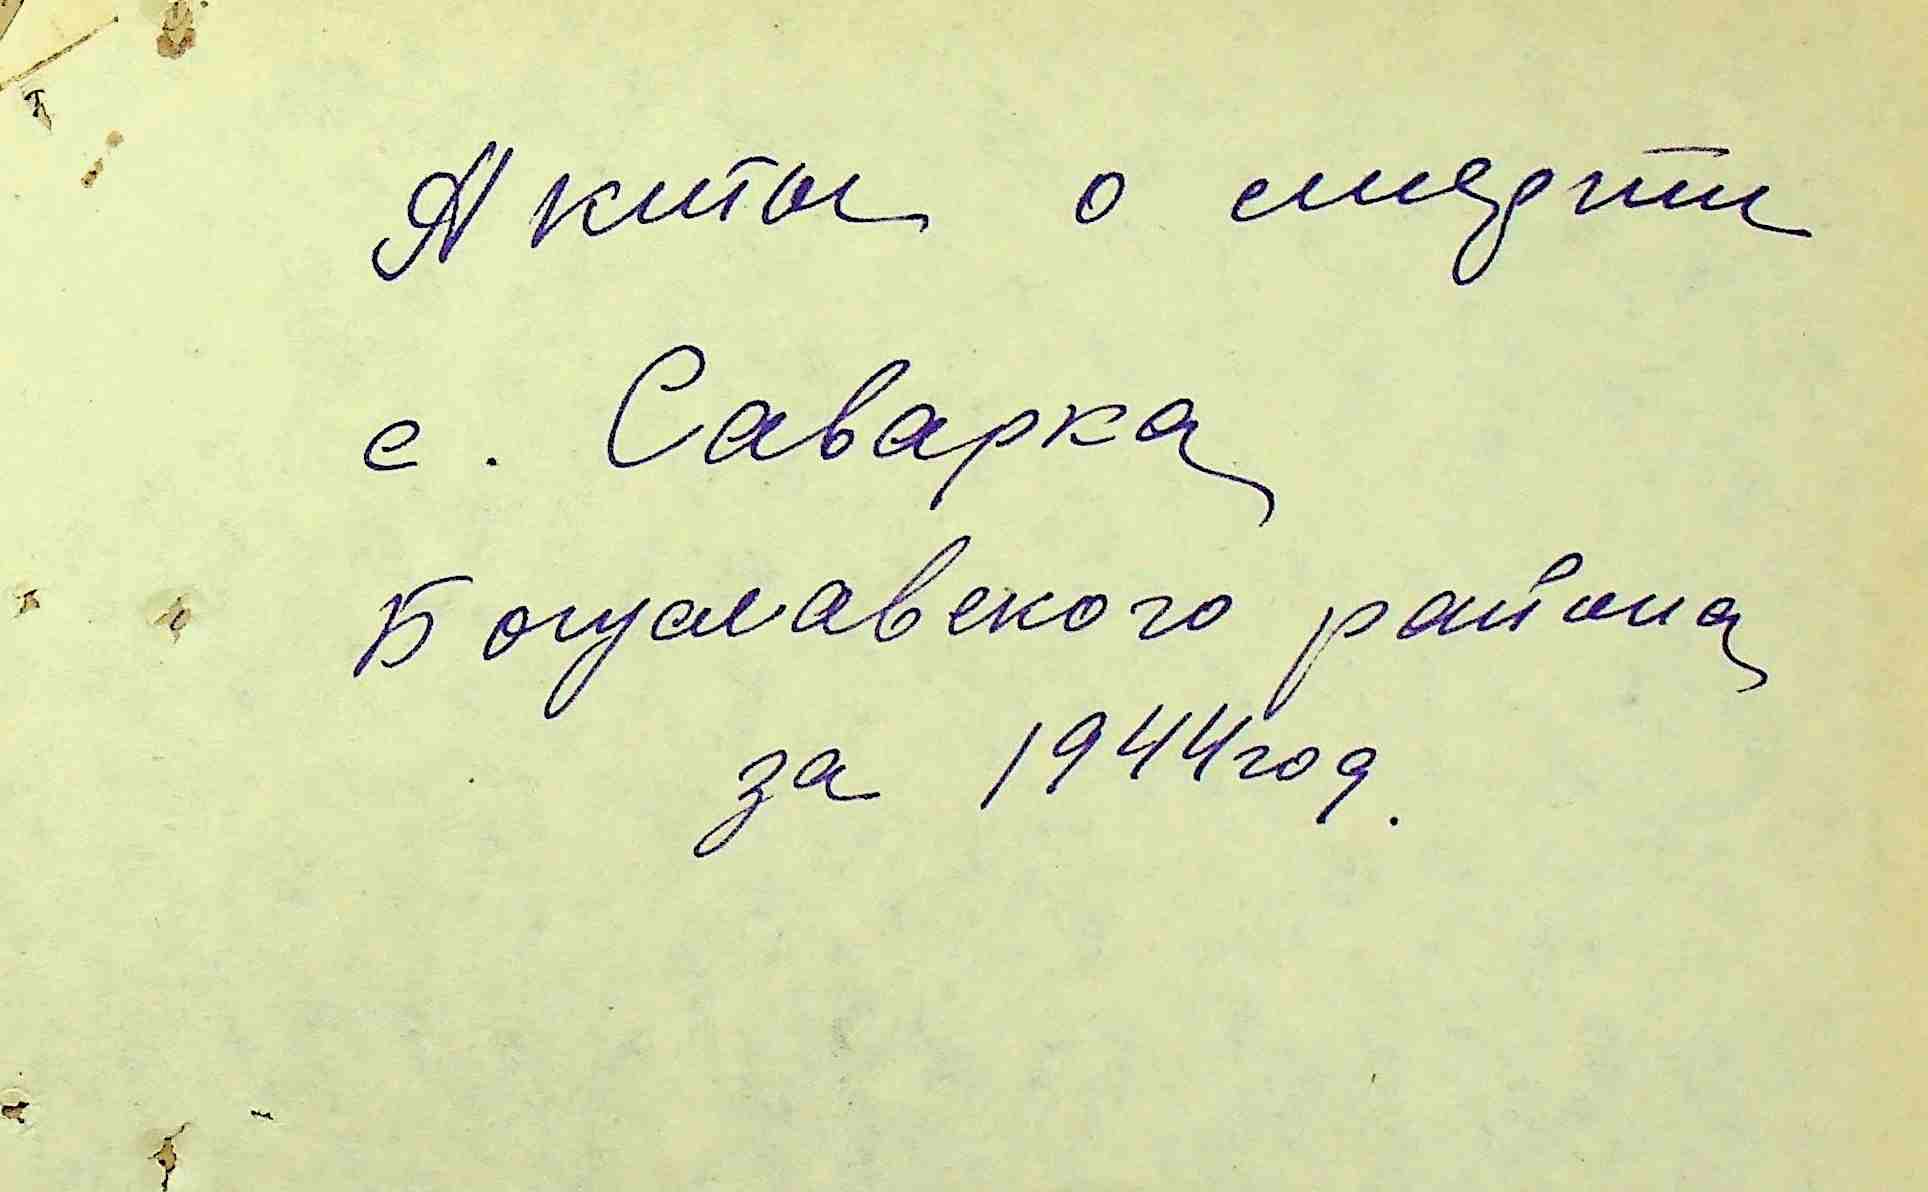 Акты о смерти
с. Саварка
Богуславского района
за 1944 год.